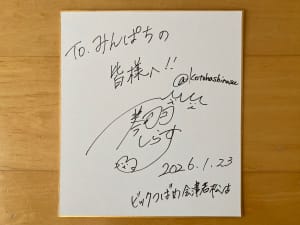 To.みんぱちの
皆様へ!!
しらす
2026.1.23
ビックつばめ会津若松店